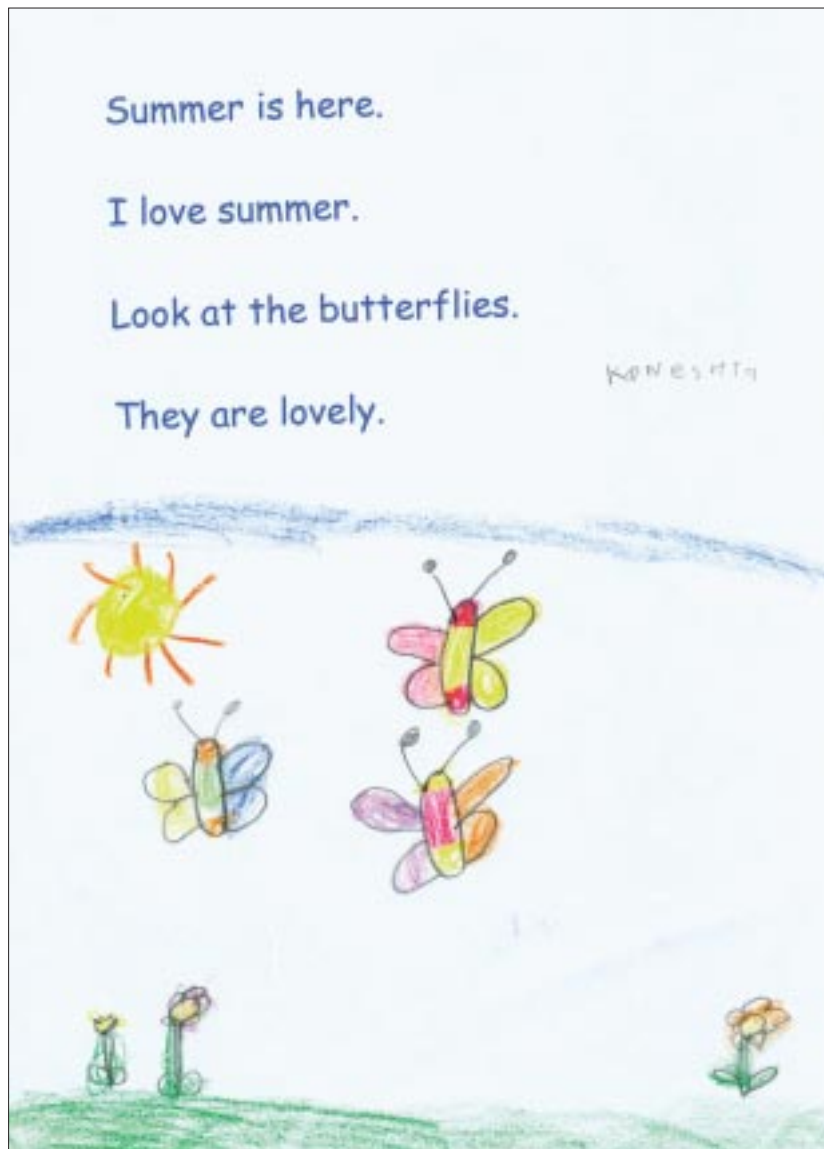 Summer is here.
I love summer.
Look at the butterflies.
They are lovely.